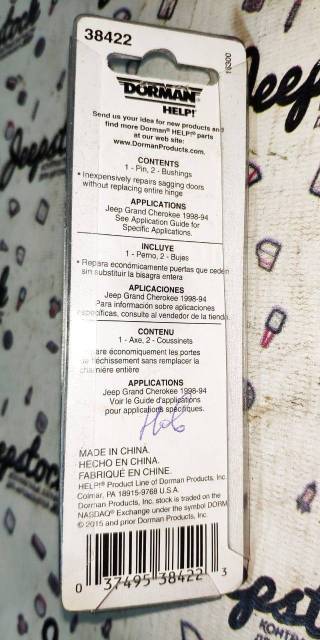 38422
16300
DORMAN®
HELP!®
Send us your idea for new products and
find more Dorman® HELP!® parts
at our web site:
www.DormanProducts.com.
CONTENTS
1 - Pin, 2 - Bushings
• Inexpensively repairs sagging doors
without replacing entire hinge
APPLICATIONS
Jeep Grand Cherokee 1998-94
See Application Guide for
Specific Applications.
INCLUYE
1 - Perno, 2 - Bujes
• Repara económicamente puertas que ceden
sin substituir la bisagra entera
APLICACIONES
Jeep Grand Cherokee 1998-94
Para información sobre aplicaciones
específicas, consulte al vendedor de la tienda.
CONTENU
1 - Axe, 2 - Coussinets
économiquement les portes
fléchissement sans remplacer la
charnière entière
APPLICATIONS
Jeep Grand Cherokee 1998-94
Voir le Guide d'applications
pour applications spécifiques.
MADE IN CHINA.
HECHO EN CHINA.
FABRIQUÉ EN CHINE.
HELP!® Product Line of Dorman Products, Inc.
Colmar, PA 18915-9768 U.S.A.
Dorman Products, Inc. stock is traded on the
NASDAQ® Exchange under the symbol DORM
© 2015 and prior Dorman Products, Inc.
0 37495 38422 3
Jeepstock